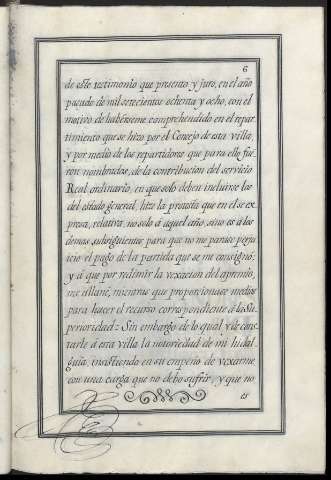 6
de este testimonio que presento y juro, en el año
pasado de mil setecientos ochenta y ocho, con el
motivo de habérseme comprehendido en el repar-
timiento que se hizo por el Concejo de esta villa,
y por medio de los repartidores que para ello fue-
ron nombrados, de la contribucion del servicio
Real ordinario, en que solo deben incluirse los
del estado general, hize la protesta que en el se ex-
presa, relativa, no solo á aquel año, sino es á los
demas subsiguientes para que no me parase perju-
icio el pago de la partida que se me consignó;
y á que por redimir la vexacion del apremio,
me allané, mientras que proporcionase medios
para hacer el recurso correspondiente á la Su-
perioridad: Sin embargo de lo qual y de cons-
tarle á esta villa la notoriedad de mi hidal-
guía, insistiendo en su empeño de vexarme
con una carga que no debo sufrir, y que no
es